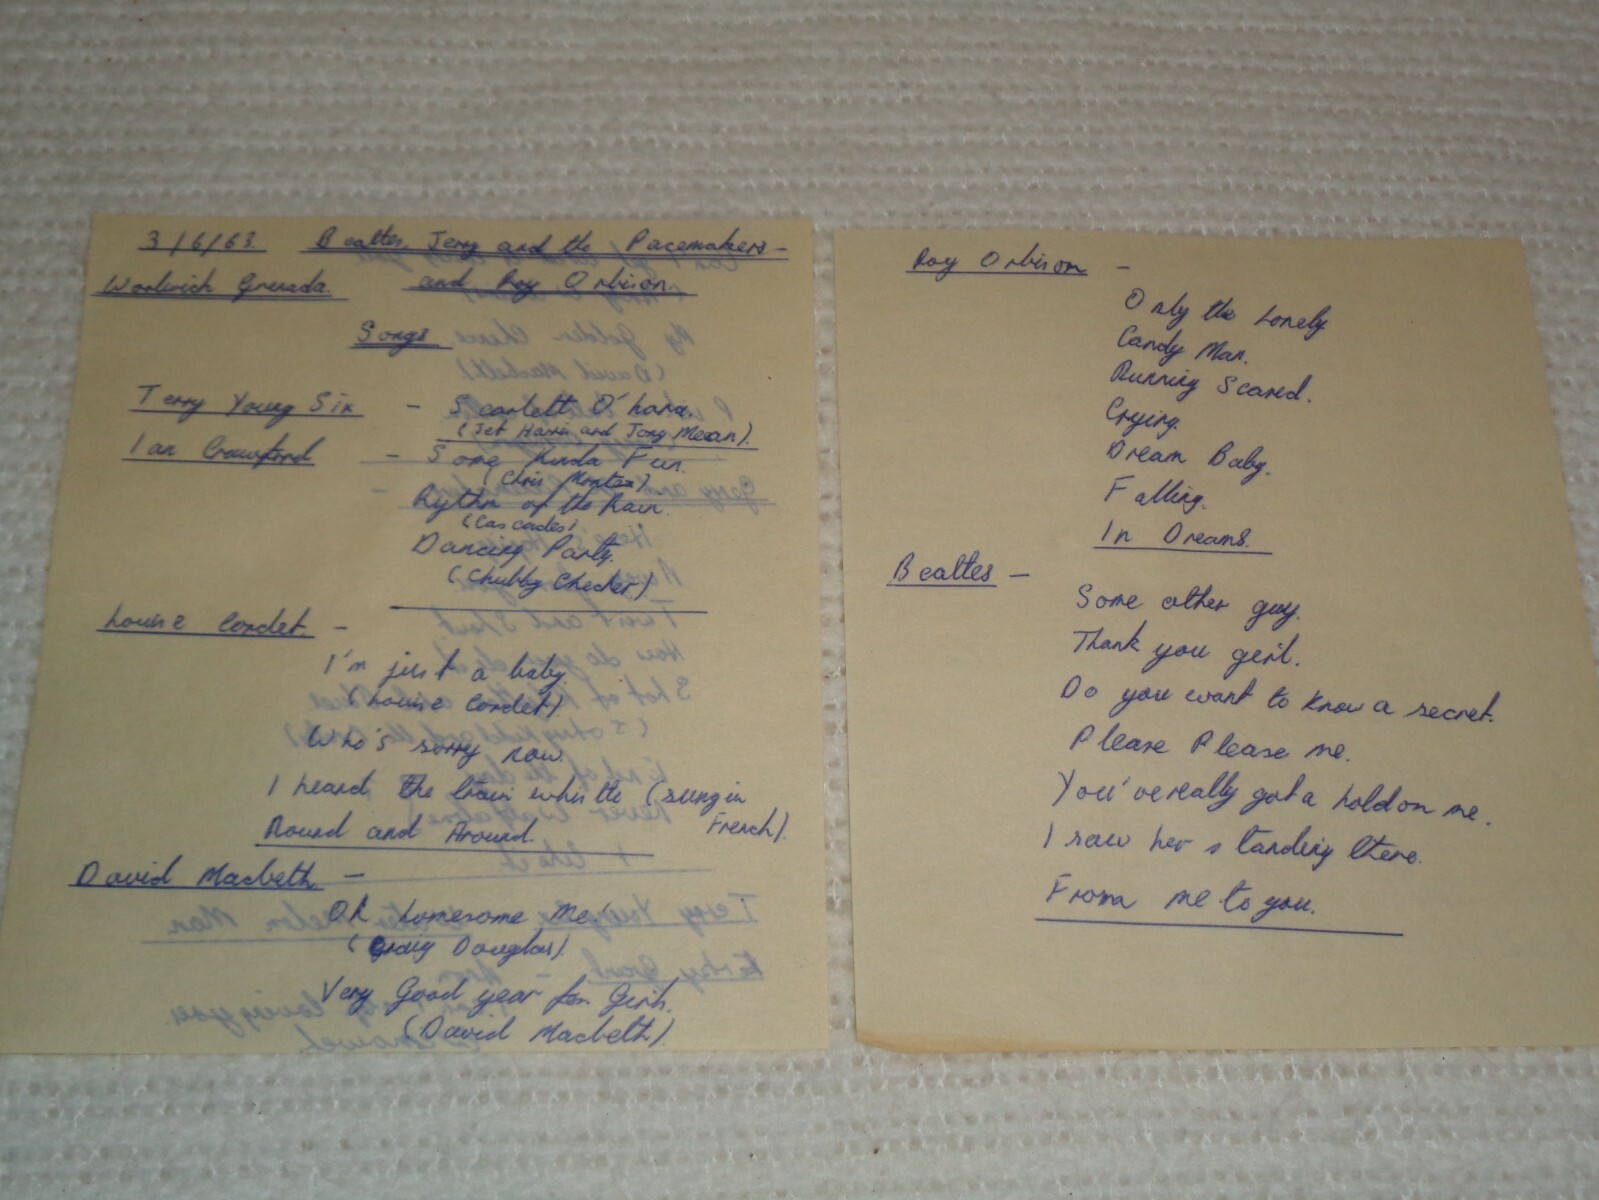 3/6/63. Beattes, Jerry and the Pacemakers -
Woolwich Grenada. and Roy Orbison.
Songs
Terry Young Six - Scarlett O'hara.
(Jet Harris and Tony Mean).
Ian Crawford - Some Kinda Fun.
(Chris Montez)
Rythm of the Rain.
(Cascades)
Dancing Party.
(Chubby Checker)
Louise Cordet. -
I'm just a baby.
(Louise Cordet).
Who's sorry now.
I heard the train whistle (sung in
French).
Round and Around.
David Macbeth -
Oh Lonesome Me.
(Craig Douglas).
Very Good year for Girls.
(David Macbeth).
Roy Orbison -
Only the Lonely
Candy Man.
Running Scared.
Crying.
Dream Baby.
Falling.
In Dreams.
Beattes -
Some other guy.
Thank you girl.
Do you want to know a secret.
Please Please me.
You've really got a hold on me.
I saw her standing there.
From me to you.